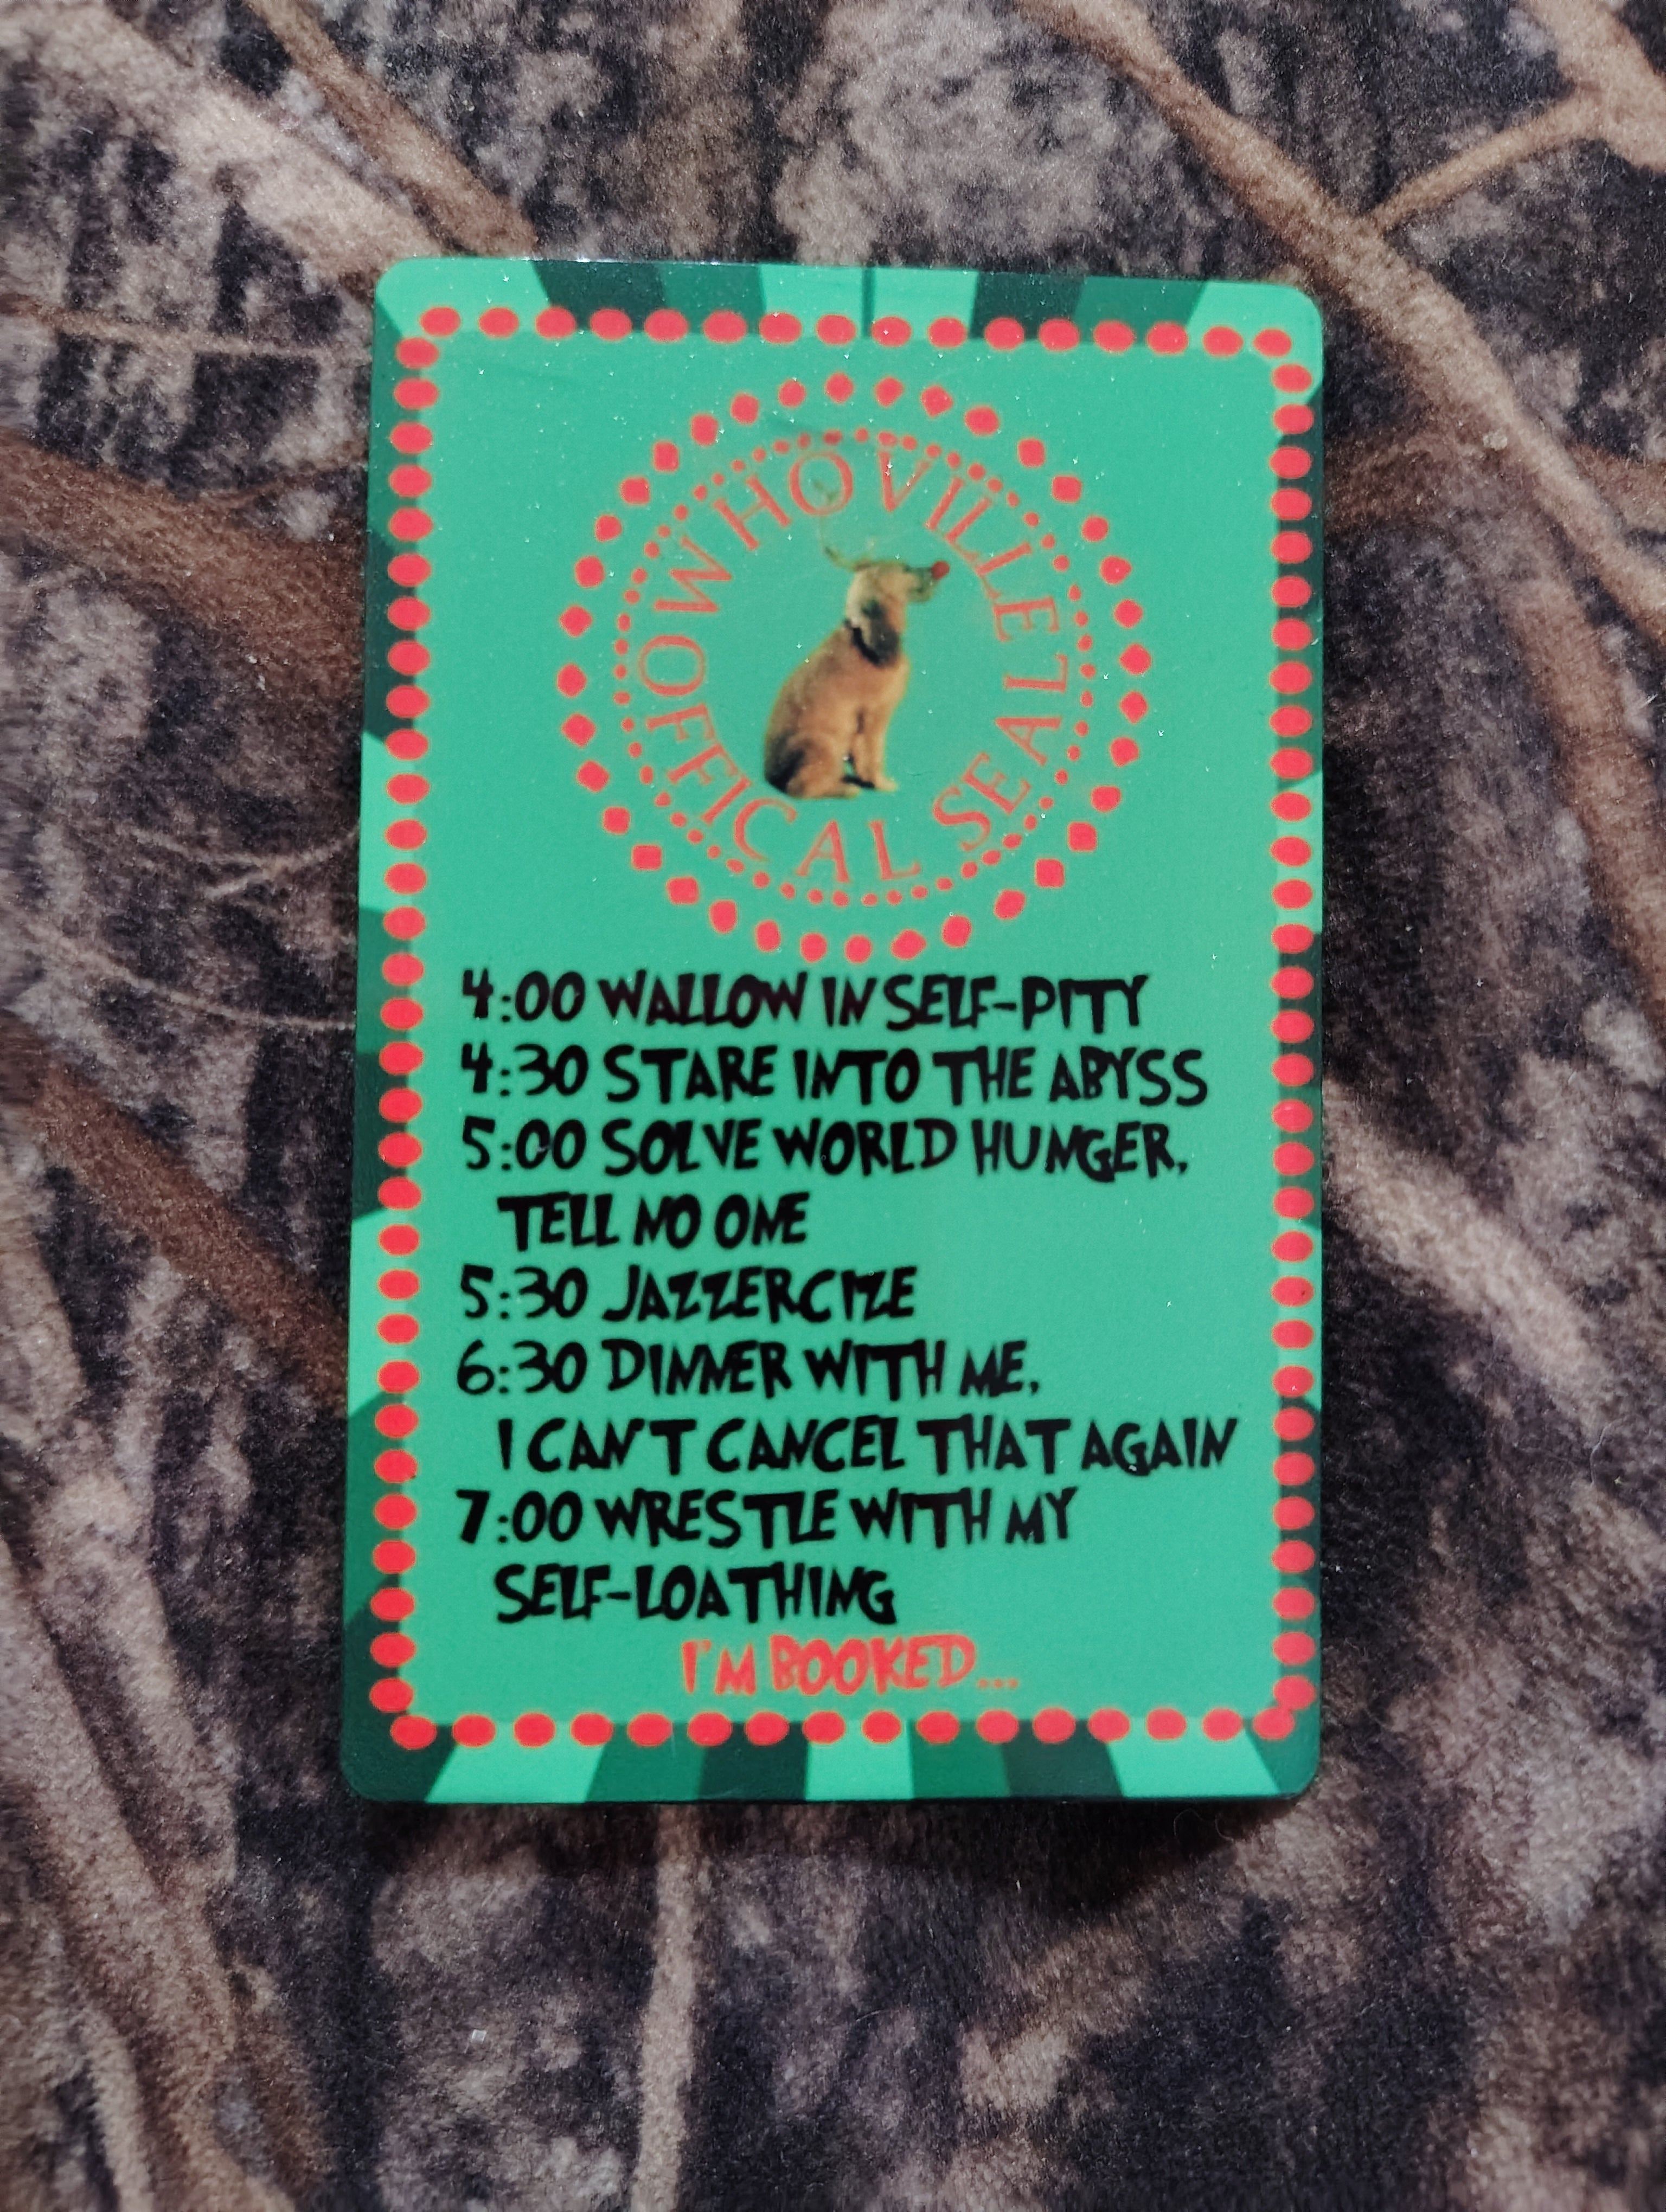 WHOVILLE
OFFICAL SEAL
4:00 WALLOW IN SELF-PITY
4:30 STARE INTO THE ABYSS
5:00 SOLVE WORLD HUNGER,
TELL NO ONE
5:30 JAZZERCIZE
6:30 DINNER WITH ME,
I CAN'T CANCEL THAT AGAIN
7:00 WRESTLE WITH MY
SELF-LOATHING
I'M BOOKED...